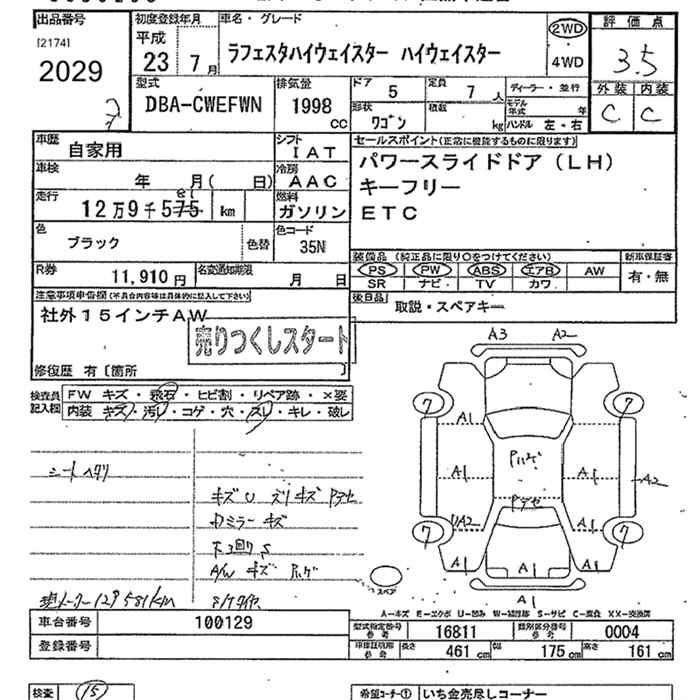 出品番号
[2174]
2029
初度登録年月
平成
23 7月
車名・グレード
ラフェスタハイウェイスター ハイウェイスター
2WD
4WD
評価点
3.5
外装 内装
C C
型式
DBA-CWEFWN
排気量
1998
CC
ドア
5
定員
7 人
ディーラー・並行
形状
ワゴン
積数
kg
モデル年式 年
ハンドル 左・右
車歴
自家用
シフト
IAT
車検
年 月( 日)
冷房
AAC
走行
12万9千575 km
燃料
ガソリン
色
ブラック
色替
色コード
35N
R券
11,910 円
名変通知期限
月 日
セールスポイント(正常に機能するものに限ります)
パワースライドドア(LH)
キーフリー
ETC
装備品 (純正品に限り○をつけてください)
PS PW ABS エアB AW
SR ナビ TV カワ
新車保証書
有・無
後日品
取説・スペアキー
注意事項申告欄(不具合内容等は具体的に記入して下さい)
社外15インチAW
売りつくしスタート
修復歴 有〔箇所 〕
検査員
記入欄
FW キズ・飛石・ヒビ割・リペア跡・×要
内装 キズ・汚レ・コゲ・穴・スレ・キレ・破レ
シートヘタリ
キズU スリキズ Pデセ
ドミラーキズ
下回りS
A/W キズ ハゲ
現メーター129581km
A3 A2
7 7
A1
Pハゲ
A1 A1 A2
Pデセ
7 7
UA2 A1
A1 A1
スペア
A1
A-キズ E-エクボ U-凹み W-補修跡 S-サビ C-腐食 XX-交換済
車台番号
100129
登録番号
型式指定番号
参考
16811
類別区分番号
参考
0004
車検証記用
参考
長さ 461 cm 幅 175 cm 高さ 161 cm
検査
15
希望コーナー① いち金売尽しコーナー